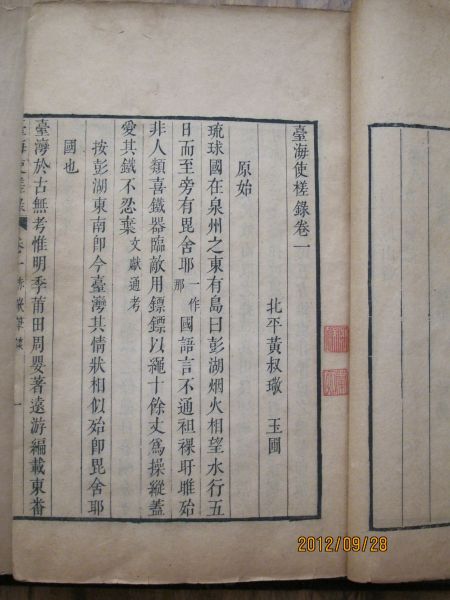 臺海使槎錄卷一
北平黃叔璥 玉圃
原始
琉球國在泉州之東有島曰彭湖烟火相望水行五
日而至旁有毘舍耶一作那國語言不通袒裸盱睢殆
非人類喜鐵器臨敵用鏢鏢以繩十餘丈爲操縱蓋
愛其鐵不忍棄文獻通考
按彭湖東南卽今臺灣其情狀相似殆卽毘舍耶
國也
臺灣於古無考惟明季莆田周嬰著遠游編載東番
2012/09/28